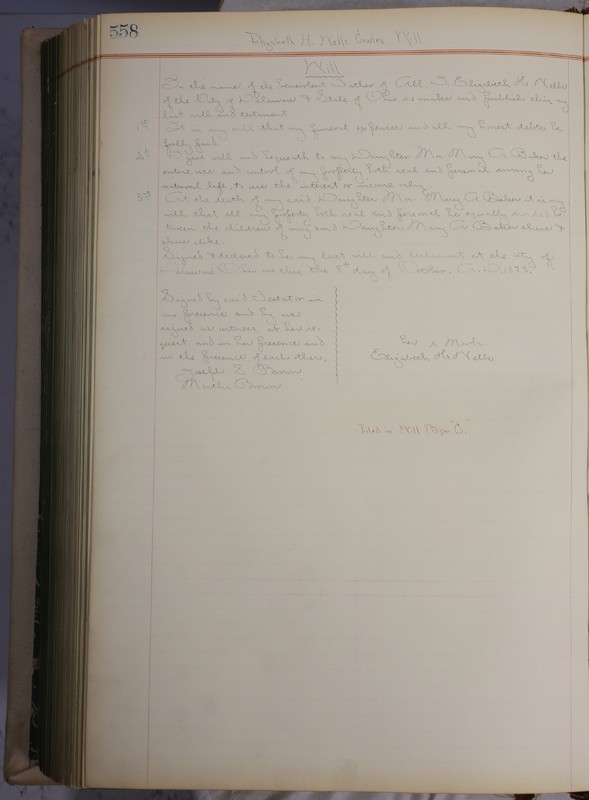 558
Elizabeth H. Nells Will
Will
In the name of the Benevolent Father of All. I, Elizabeth H. Nells
of the City of Delaware & State of Ohio do make and publish this my
last will and testament
1st It is my will that my funeral expenses and all my honest debts be
fully paid.
2d I give will and bequeath to my Daughter Mrs. Mary A. Baker the
entire use and control of my property both real and personal during her
natural life, to use the interest or income only.
3rd At the death of my said Daughter Mrs. Mary A. Baker it is my
will that all my property both real and personal be equally divided be
tween the children of my said Daughter Mary A. Baker share &
share alike
Signed & declared to be my last will and testament at the city of
Delaware Ohio on this the 8th day of October. A.D. 1873.
Signed by said Testator in
our presence and by us
signed as witness at her re-
quest and in her presence and
in the presence of each other.
Joseph E Brown
Martha Brown
her x Mark
Elizabeth H. Nells
Filed in Will Box "C."